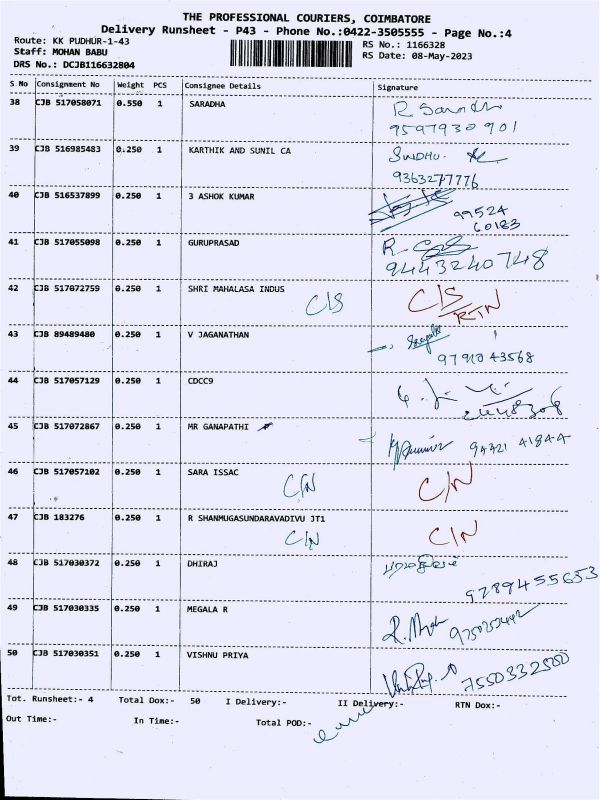 THE PROFESSIONAL COURIERS, COIMBATORE
Delivery Runsheet - P43 - Phone No.:0422-3505555 - Page No.:4
Route: KK PUDHUR-1-43
RS No.: 1166328
Staff: MOHAN BABU
RS Date: 08-May-2023
DRS No.: DCJB116632804
S No Consignment No Weight PCS Consignee Details Signature
38 CJB 517058071 0.550 1 SARADHA R Saradha
9597930901
39 CJB 516985483 0.250 1 KARTHIK AND SUNIL CA SINDHU.
9363277776
40 CJB 516537899 0.250 1 3 ASHOK KUMAR 99524
60183
41 CJB 517055098 0.250 1 GURUPRASAD R.
9443240748
42 CJB 517072759 0.250 1 SHRI MAHALASA INDUS C/S C/S
RTN
43 CJB 89489480 0.250 1 V JAGANATHAN
9791043568
44 CJB 517057129 0.250 1 CDCC9
45 CJB 517072867 0.250 1 MR GANAPATHI 94421 41844
46 CJB 517057102 0.250 1 SARA ISSAC
C/N C/N
47 CJB 183276 0.250 1 R SHANMUGASUNDARAVADIVU JT1
C/N C/N
48 CJB 517030372 0.250 1 DHIRAJ
9789455653
49 CJB 517030335 0.250 1 MEGALA R
50 CJB 517030351 0.250 1 VISHNU PRIYA 7550332500
Tot. Runsheet:- 4 Total Dox:- 50 I Delivery:- II Delivery:- RTN Dox:-
Out Time:- In Time:- Total POD:-